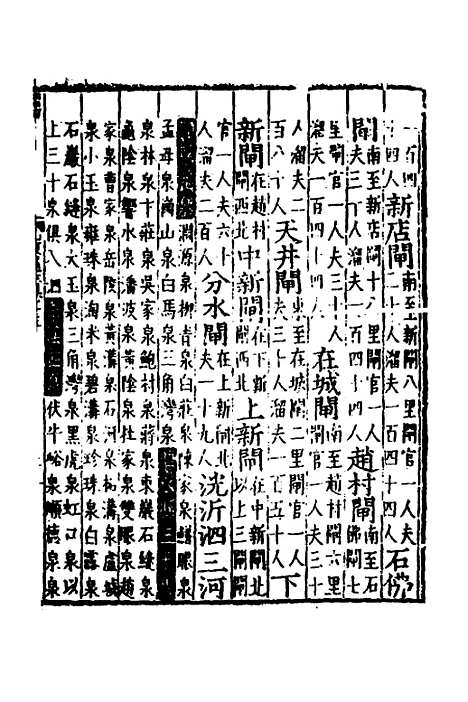 一百四 新店閘 南至新閘八里閘官一人夫
十四人 二十人溜夫一百四十四人 石佛
閘 南至新店閘十八里閘官一人 趙村閘 南至石佛閘七
夫三十人溜夫一百四十四人
里閘官一人夫 在城閘 南至趙村閘六里
溜夫一百四十四人 閘官一人夫三十
人溜夫二 天井閘 東至在城閘二里閘官一人 下
百八十人 夫三十人溜夫一百五十人
新閘 在趙村閘西北 中新閘 在下新閘西北 上新閘 在中新閘北以上三閘
官一人夫六十 分水閘 在上新閘北 洸沂泗三河
人溜夫二百人 夫一十九人
淵源泉柳青泉白莊泉陳家泉鱔眼泉
孟母泉崗山泉白馬泉三角灣泉
泉林泉卞莊泉吳家泉鮑村泉蔣泉東巖石縫泉
龜陰泉響水泉潘波泉黃陰泉杜家泉雙眼泉趙
家泉曹家泉岳陵泉黃溝泉石河泉柘溝泉盧城
泉小玉泉雍珠泉淘米泉碧溝泉珍珠泉白露泉
石巖石縫泉大玉泉三角灣泉黑虎泉虹口泉以
上三十泉俱入泗 伏牛峪泉順德泉